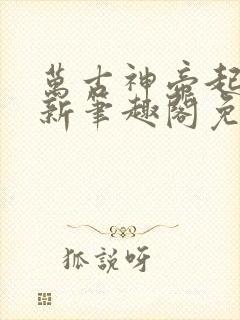 萬古神帝起
新筆趣閣免
狐說呀